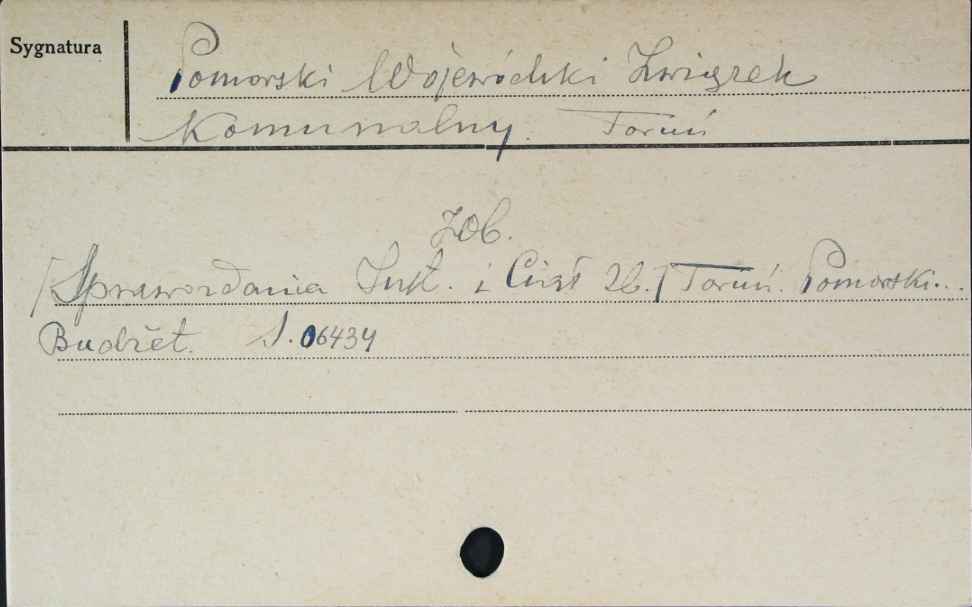 Sygnatura
Pomorski Wojewódzki Związek
Komunalny. Toruń
Zob.
/Sprawozdania Inst. i Ciał Zb./ Toruń. Pomorski...
Budżet. S.06434